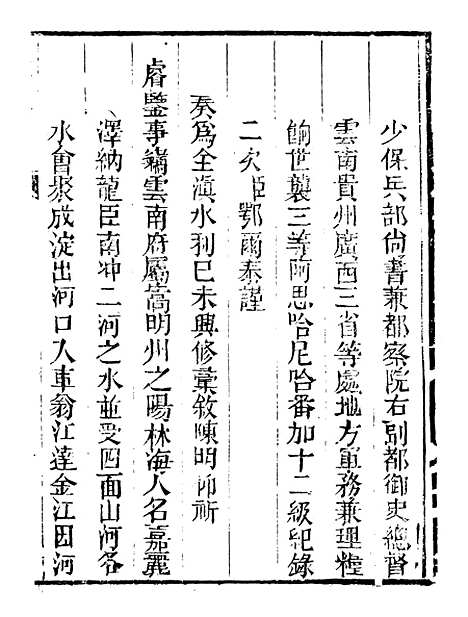 少保兵部尚書兼都察院右副都御史總督
雲南貴州廣西三省等處地方軍務兼理糧
餉世襲三等阿思哈尼哈番加十二級紀錄
二次臣鄂爾泰謹
奏為全滇水利已未興修彙敘陳明仰祈
睿鑒事竊雲南府屬嵩明州之陽林海人名嘉麗
澤納龍臣南冲二河之水並受四面山河各
水會聚成淀出河口入車翁江達金江因河